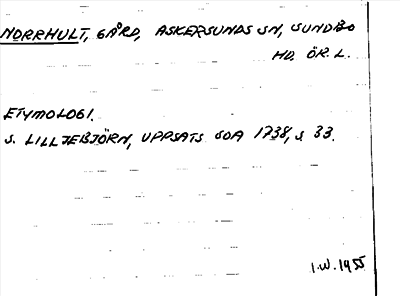 NORRHULT, GÅRD, ASKERSUNDS SN, SUNDBO
HD. ÖR. L.
ETYMOLOGI.
S. LILLJEBJÖRN, UPPSATS SOA 1738, S 33.
I.W. 1955